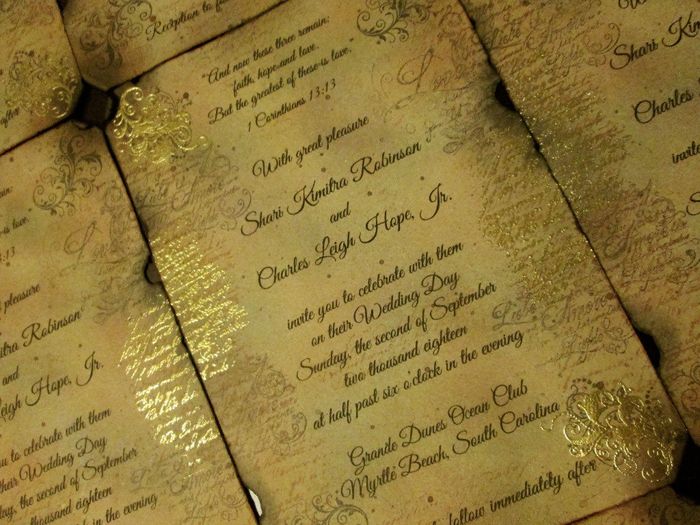 Reception to f
"And now these three remain:
faith, hope and love.
But the greatest of these is love."
1 Corinthians 13:13
With great pleasure
Shari Kimitra Robinson
and
Charles Leigh Hope, Jr.
invite you to celebrate with them
on their Wedding Day
Sunday, the second of September
two thousand eighteen
at half past six o'clock in the evening
Grande Dunes Ocean Club
Myrtle Beach, South Carolina
follow immediately after
after
is love."
13:13
pleasure
Robinson
and
Hope, Jr.
to celebrate with them
their Wedding Day
the second of September
thousand eighteen
in the evening
Shari
Charles
invite